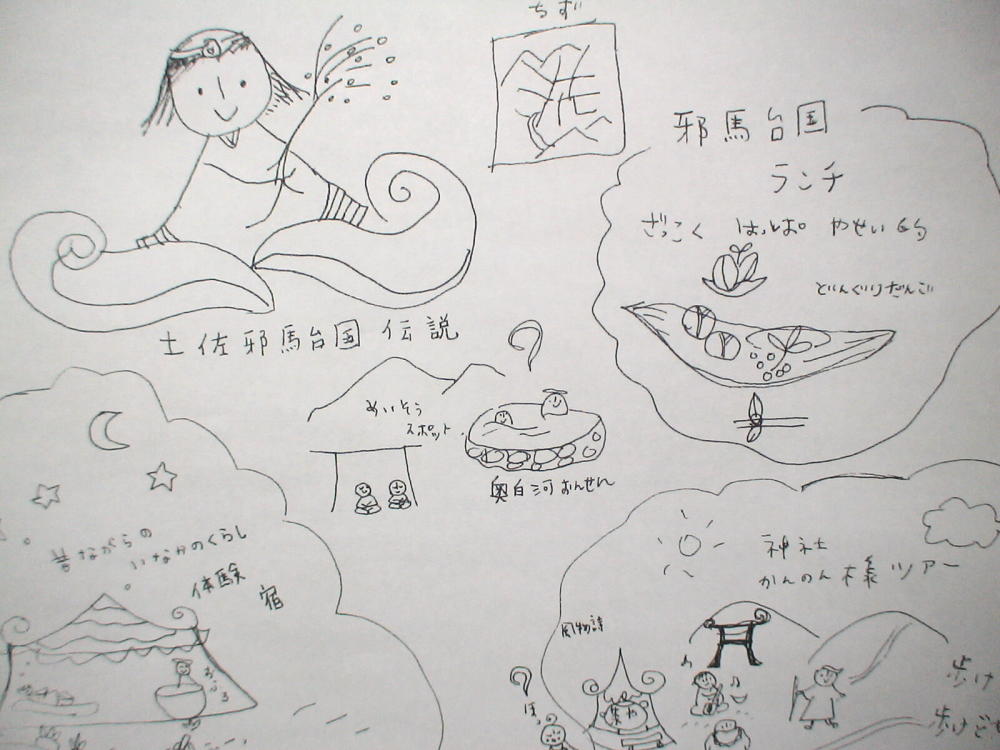 ちず
邪馬台国
ランチ
ざっこく はっぱ やせい的
どんぐりだんご
土佐邪馬台国伝説
めいそう
スポット
奥白河おんせん
昔ながらの
いなかのくらし
体験
宿
おふろ
神社
かんのん様ツアー
風物詩
歩け